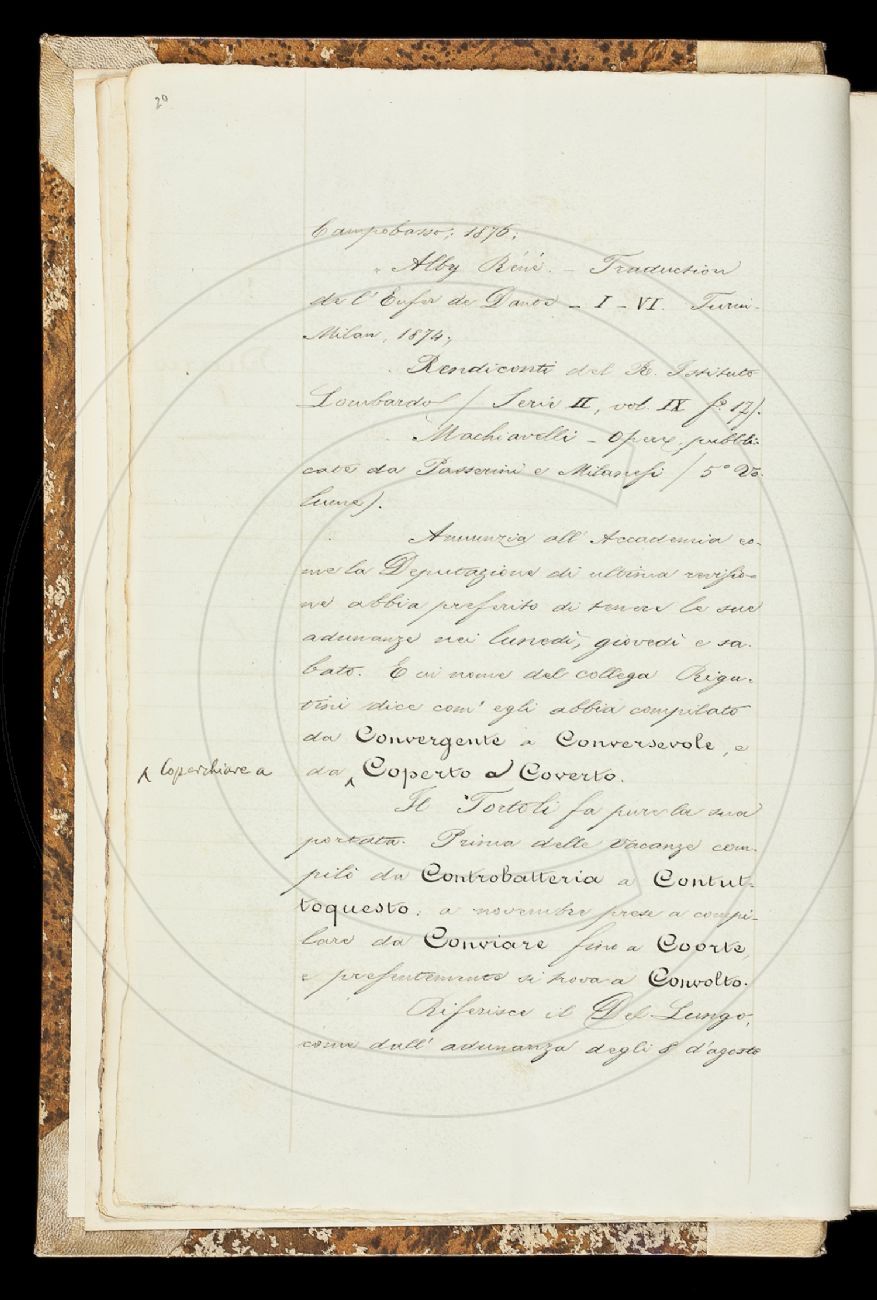 20
Campobasso; 1876;
" Alby Réné. – Traduction
de l'Enfer de Dante – I – VI. Turin-
Milan, 1874;
Rendiconti del R. Istituto
Lombardo (Serie II, vol. IX f.º 17).
Machiavelli – Opere, pubbli-
cate da Passerini e Milanesi (5º Vo-
lume).
Annunzia all'Accademia co-
me la Deputazione di ultima revisio-
ne abbia preferito di tenere le sue
adunanze nei lunedì, giovedì e sa-
bato. E in nome del collega Rigu-
tini dice com'egli abbia compilato
da Convergente a Conversevole, e
^ Coperchiare a
da ^ Coperto a Coverto.
Il Tortoli fa pure la sua
portata. Prima delle vacanze com-
pilò da Controbatteria a Contut-
toquesto; a novembre prese a compi-
lare da Conviare fino a Coorte,
e presentemente si trova a Convolto.
Riferisce il Del-Lungo,
come dall'adunanza degli 8 d'agosto